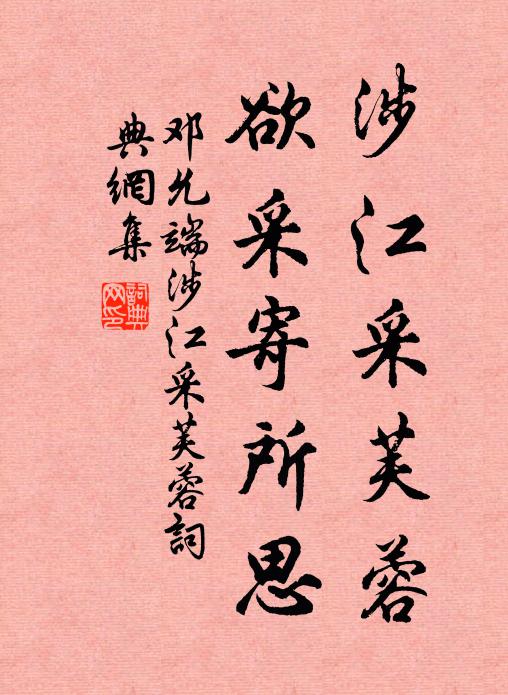 涉江采芙蓉
欲采寄所思
邓允端涉江采芙蓉詞
典網集
詞典
网印